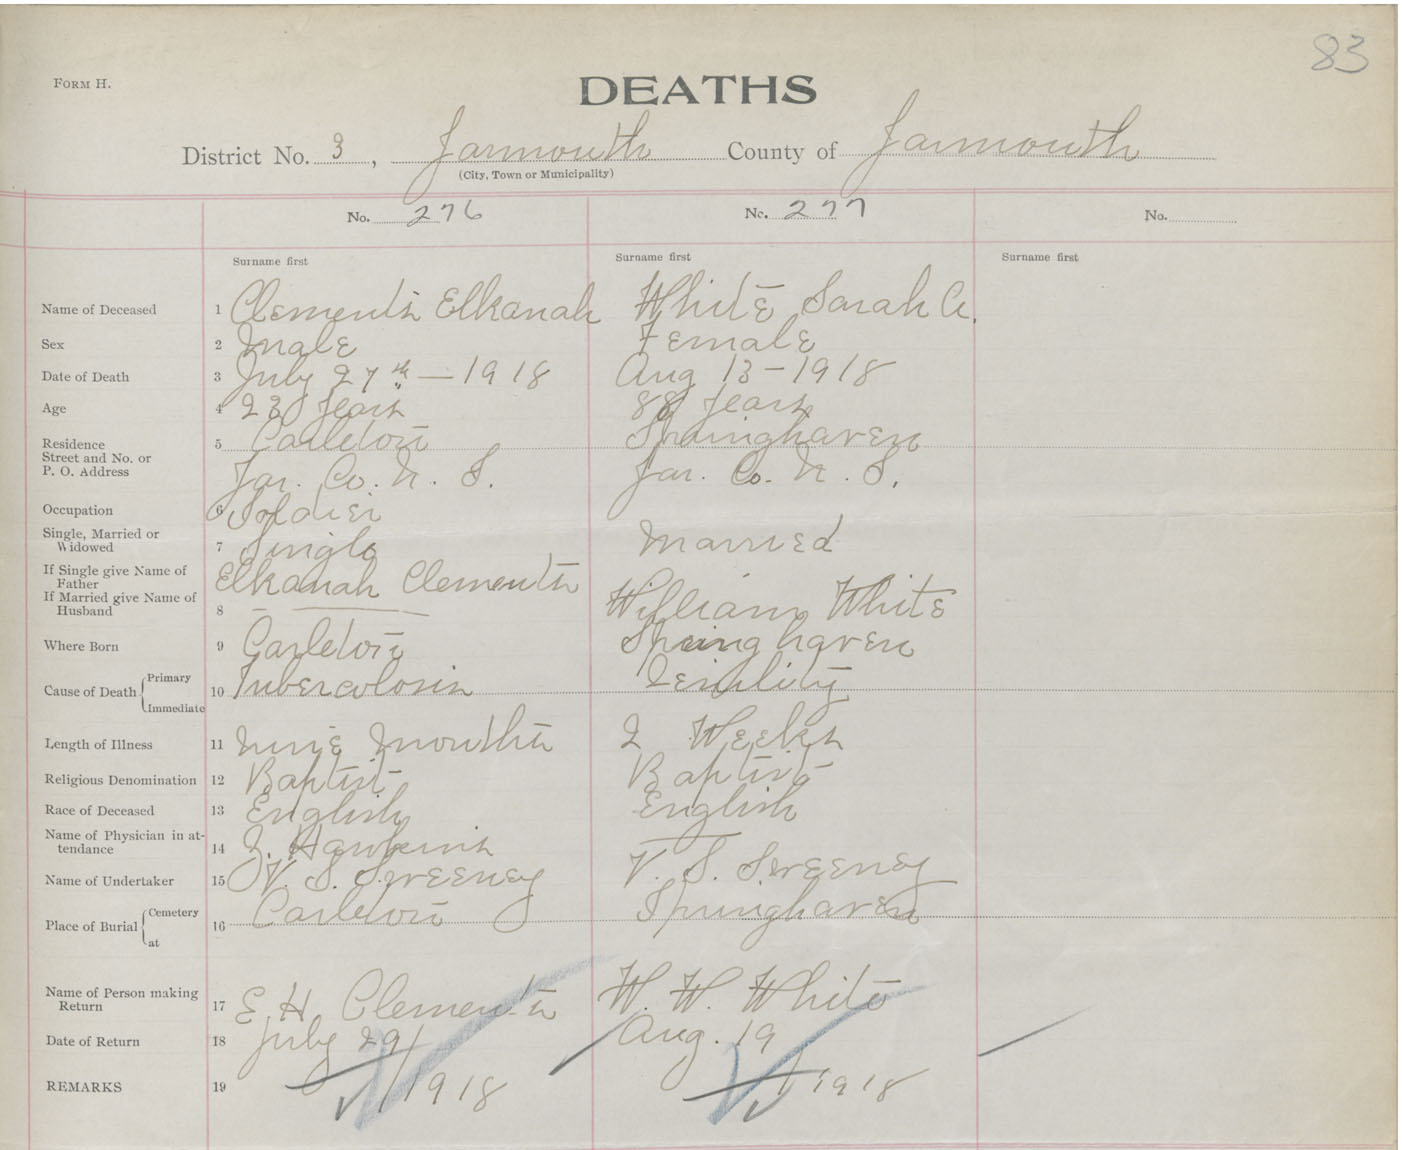 83
FORM H.
DEATHS
District No. 3, Yarmouth County of Yarmouth
(City, Town or Municipality)
No. 276 No. 277 No.
Surname first Surname first Surname first
Name of Deceased 1 Clements Elkanah White Sarah A.
Sex 2 Male Female
Date of Death 3 July 27th — 1918 Aug 13 - 1918
Age 4 23 Years 88 Years
Residence 5 Carleton Springhaven
Street and No. or
P. O. Address Yar. Co. N. S. Yar. Co. N. S.
Occupation 6 Soldier
Single, Married or
Widowed 7 Single Married
If Single give Name of
Father Elkanah Clements
If Married give Name of
Husband 8 William White
Where Born 9 Carleton Springhaven
Cause of Death Primary
Immediate 10 Tuberculosis Senility
Length of Illness 11 Nine Months 2 Weeks
Religious Denomination 12 Baptist Baptist
Race of Deceased 13 English English
Name of Physician in at-
tendance 14 Z. Hawkins
Name of Undertaker 15 V. S. Sweeney V. S. Sweeney
Place of Burial Cemetery
at 16 Carleton Springhaven
Name of Person making
Return 17 E H. Clements W. W. White
Date of Return 18 July 29 Aug. 19
REMARKS 19 1918 1918